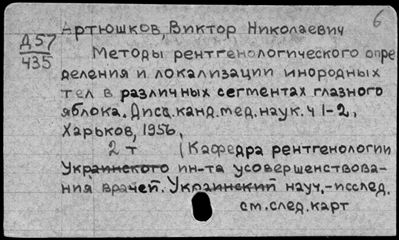 6
Артюшков, Виктор Николаевич
Д57
435
Методы рентгенологического опре
деления и локализации инородных
тел в различных сегментах глазного
яблока. Дисс. канд. мед. наук. ч 1-2,
Харьков, 1956,
2 т (Кафедра рентгенологии
Украинского ин-та усовершенствова-
ния врачей. Украинский науч.-исслед.
см. след. карт